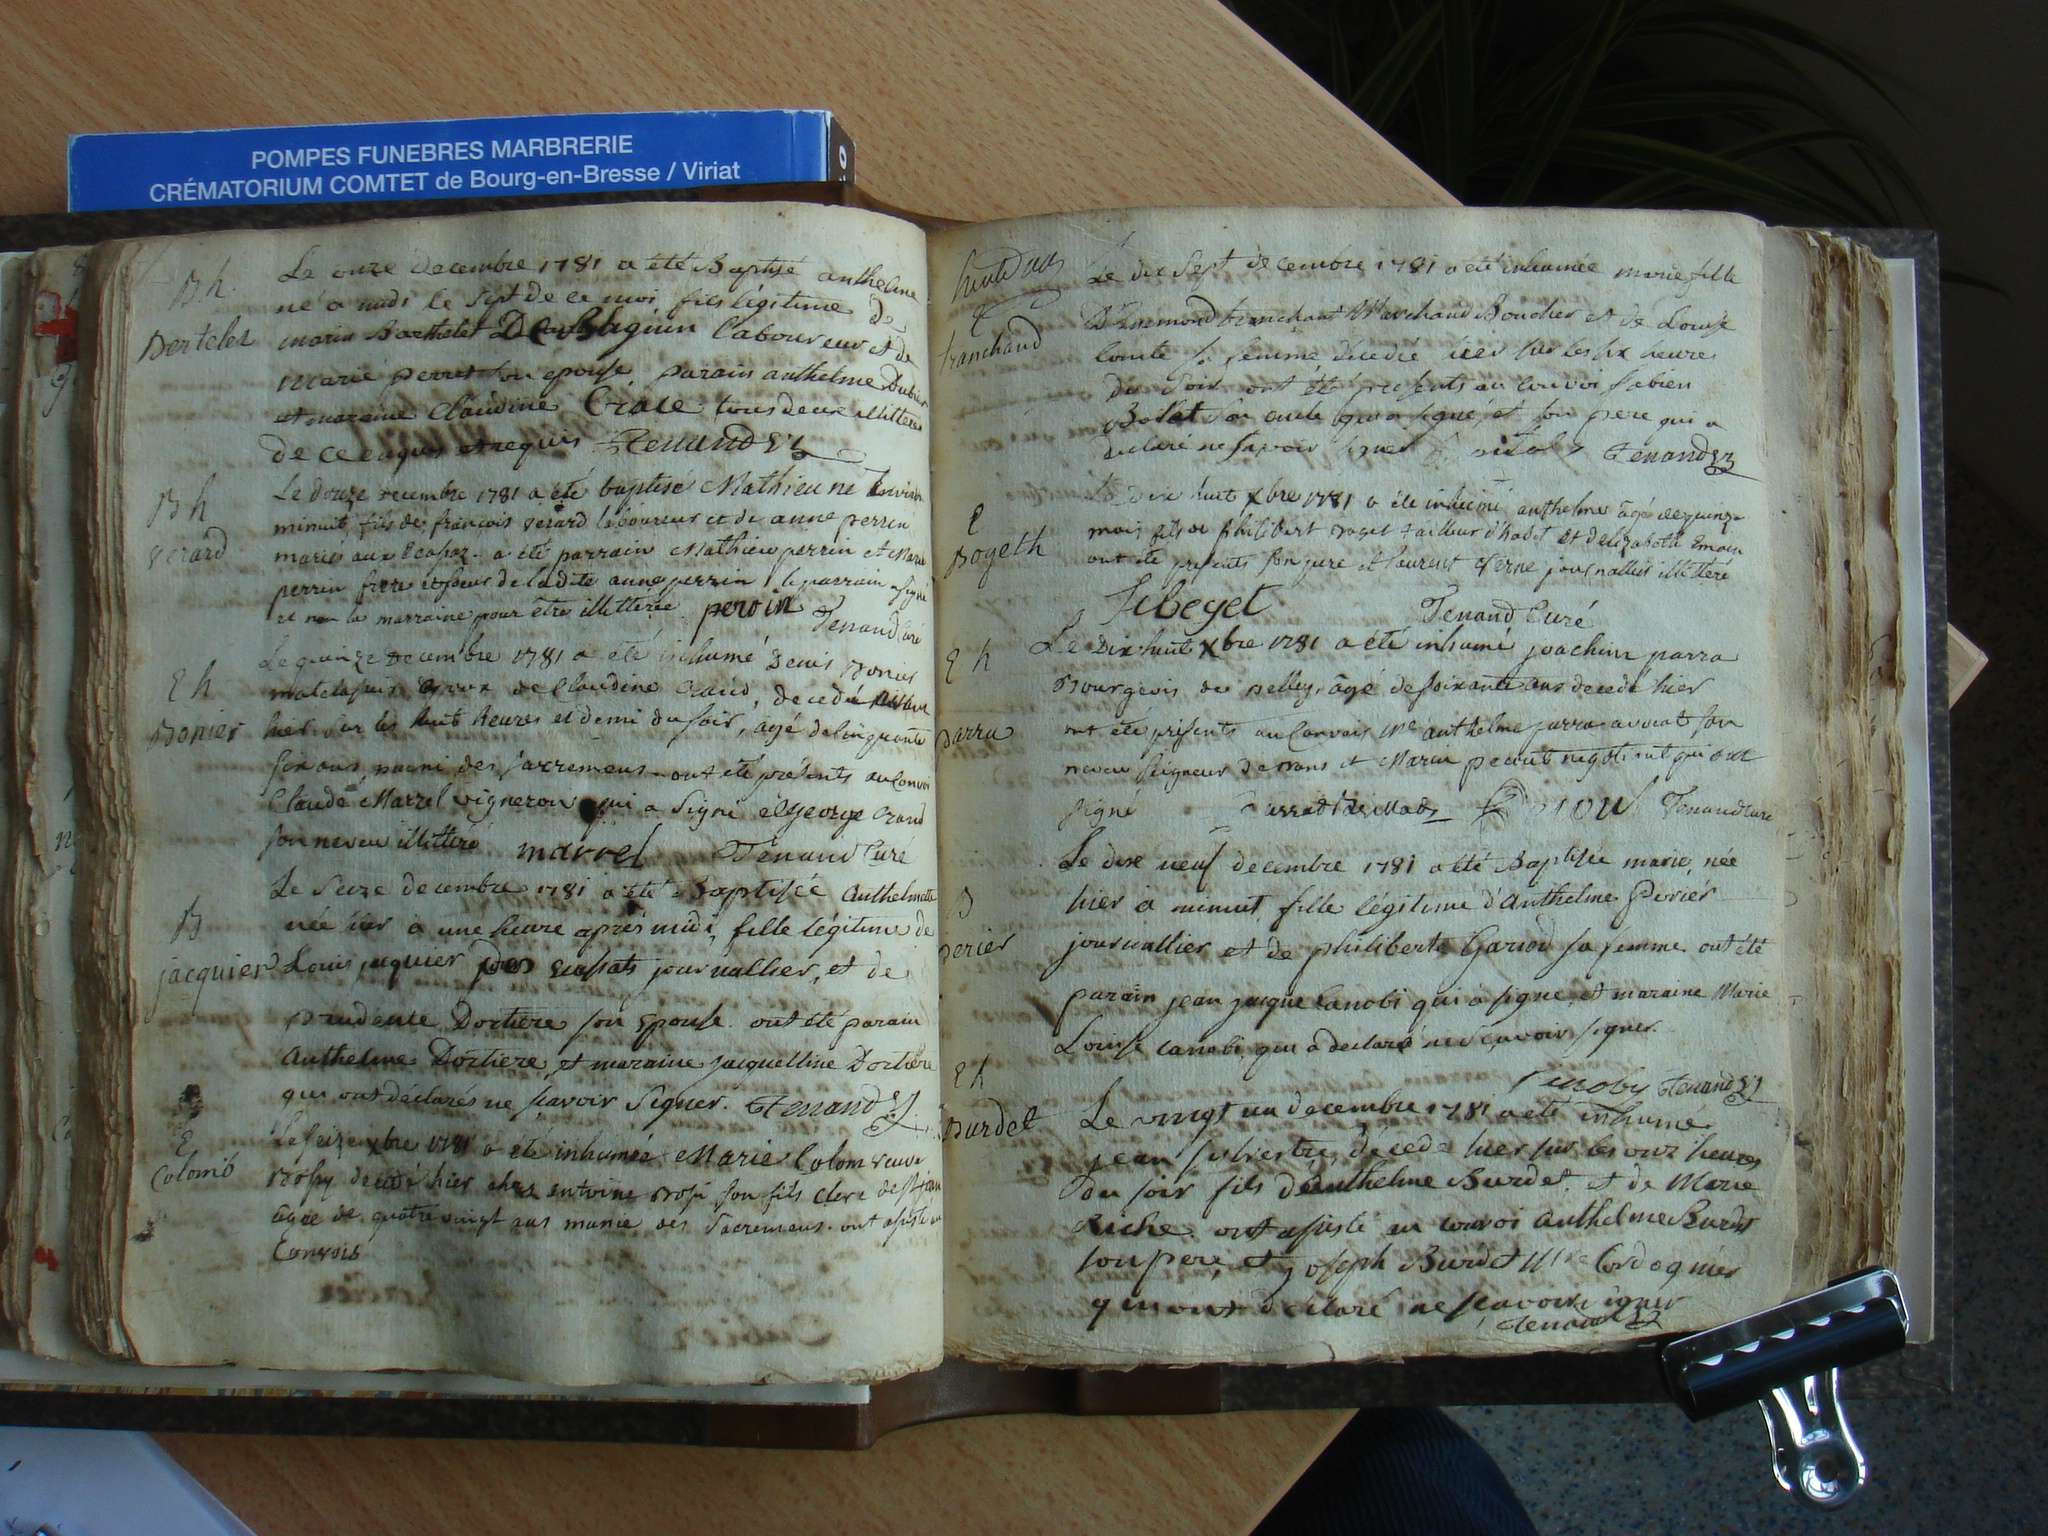 POMPES FUNEBRES MARBRERIE
CRÉMATORIUM COMTET de Bourg-en-Bresse / Viriat
B.h.
Bertelet
Le onze decembre 1781 a été Baptisé anthelme
né a midi le sept de ce moi fils légitime de
marin Barthelet laboureur et de
marie perret son epouse parain anthelme Dubier
et maraine Claudine Craue tous deux illitterés
de ce enquis et requis Tenand
B h
Verard
Le douze decembre 1781 a été baptisé Mathieu né Environ
minuit fils de françois verard laboureur et de anne perrin
mariés aux a été parrain Mathieu perrin et Marie
perrin frere et soeur de ladite anne perrin le parrain a signé
et non la marraine pour être illitterée perrin Tenand Curé
E h
Bonier
Le quinze Decembre 1781 a été inhumé Denis Bonier
epoux de Claudine Craud, decedé
hier sur les huit heures et demi du soir, agé de cinquante
six ans, muni des sacremens ont été présents au Convoi
Claude Marrel vigneron qui a signé et George Craud
son neveu illitteré marrel Tenand Curé
B
jacquier
Le Seize decembre 1781 a été Baptisée Anthelmette
née hier à une heure après midi, fille légitime de
Louis jaquier des journallier, et de
prudente Dortiere son Epouse. ont été parain
Anthelme Dortiere, et maraine jacquelline Dortiere
qui ont déclarés ne sçavoir signer. Tenand
E
Colomb
Le seize xbre 1781 a été inhumée Marie Colom veuve
Bossy decedé hier chez antoine Bossi son fils Clerc de St jean
agée de quatre vingt ans munie des Sacremens. ont assisté au
Convois
E
tranchand
Le dix Sept decembre 1781 a été inhumée marie fille
D'Enemond tranchant Marchand Boucher et de Louise
Comte sa femme, decedée hier sur les six heures
du soir ont été presents au convoi fabien
son oncle qui a signé, et son pere qui a
declaré ne sçavoir signer Tenand
E
Bogeth
Le Dix huit xbre 1781 a été inhumé anthelme agé de quinze
mois fils de philibert Boget tailleur d'habit et d'elizabeth
ont été presents son pere et laurent Verne journallier illitteré
Tenand Curé
E h
parra
Le Dix huit xbre 1781 a été inhumé joachim parra
Bourgeois de Belley, agé de soixante ans decedé hier
ont été présents au Convois Me anthelme parra avocat son
neveu Seigneur de et Marin negotiant qui ont
signé Tenand Curé
B
perier
Le dix neuf decembre 1781 a été Baptisée marie, née
hier à minuit, fille légitime d'Anthelme Perier
journallier et de philiberte Gariod sa femme ont été
parain jean jaque Canobi qui a signé, et maraine Marie
Louise canobi qui a declaré ne sçavoir signer.
Tenand
E h
Burdet
Le vingt un decembre 1781 a été inhumé
jean silvestre, decedé hier sur les onze heures
du soir fils d'Anthelme Burdet, et de Marie
Riche ont assisté au convoi Anthelme Burdet
son pere, et joseph Burdet Mtre Cordognier
qui ont declaré ne sçavoir signer
Tenand